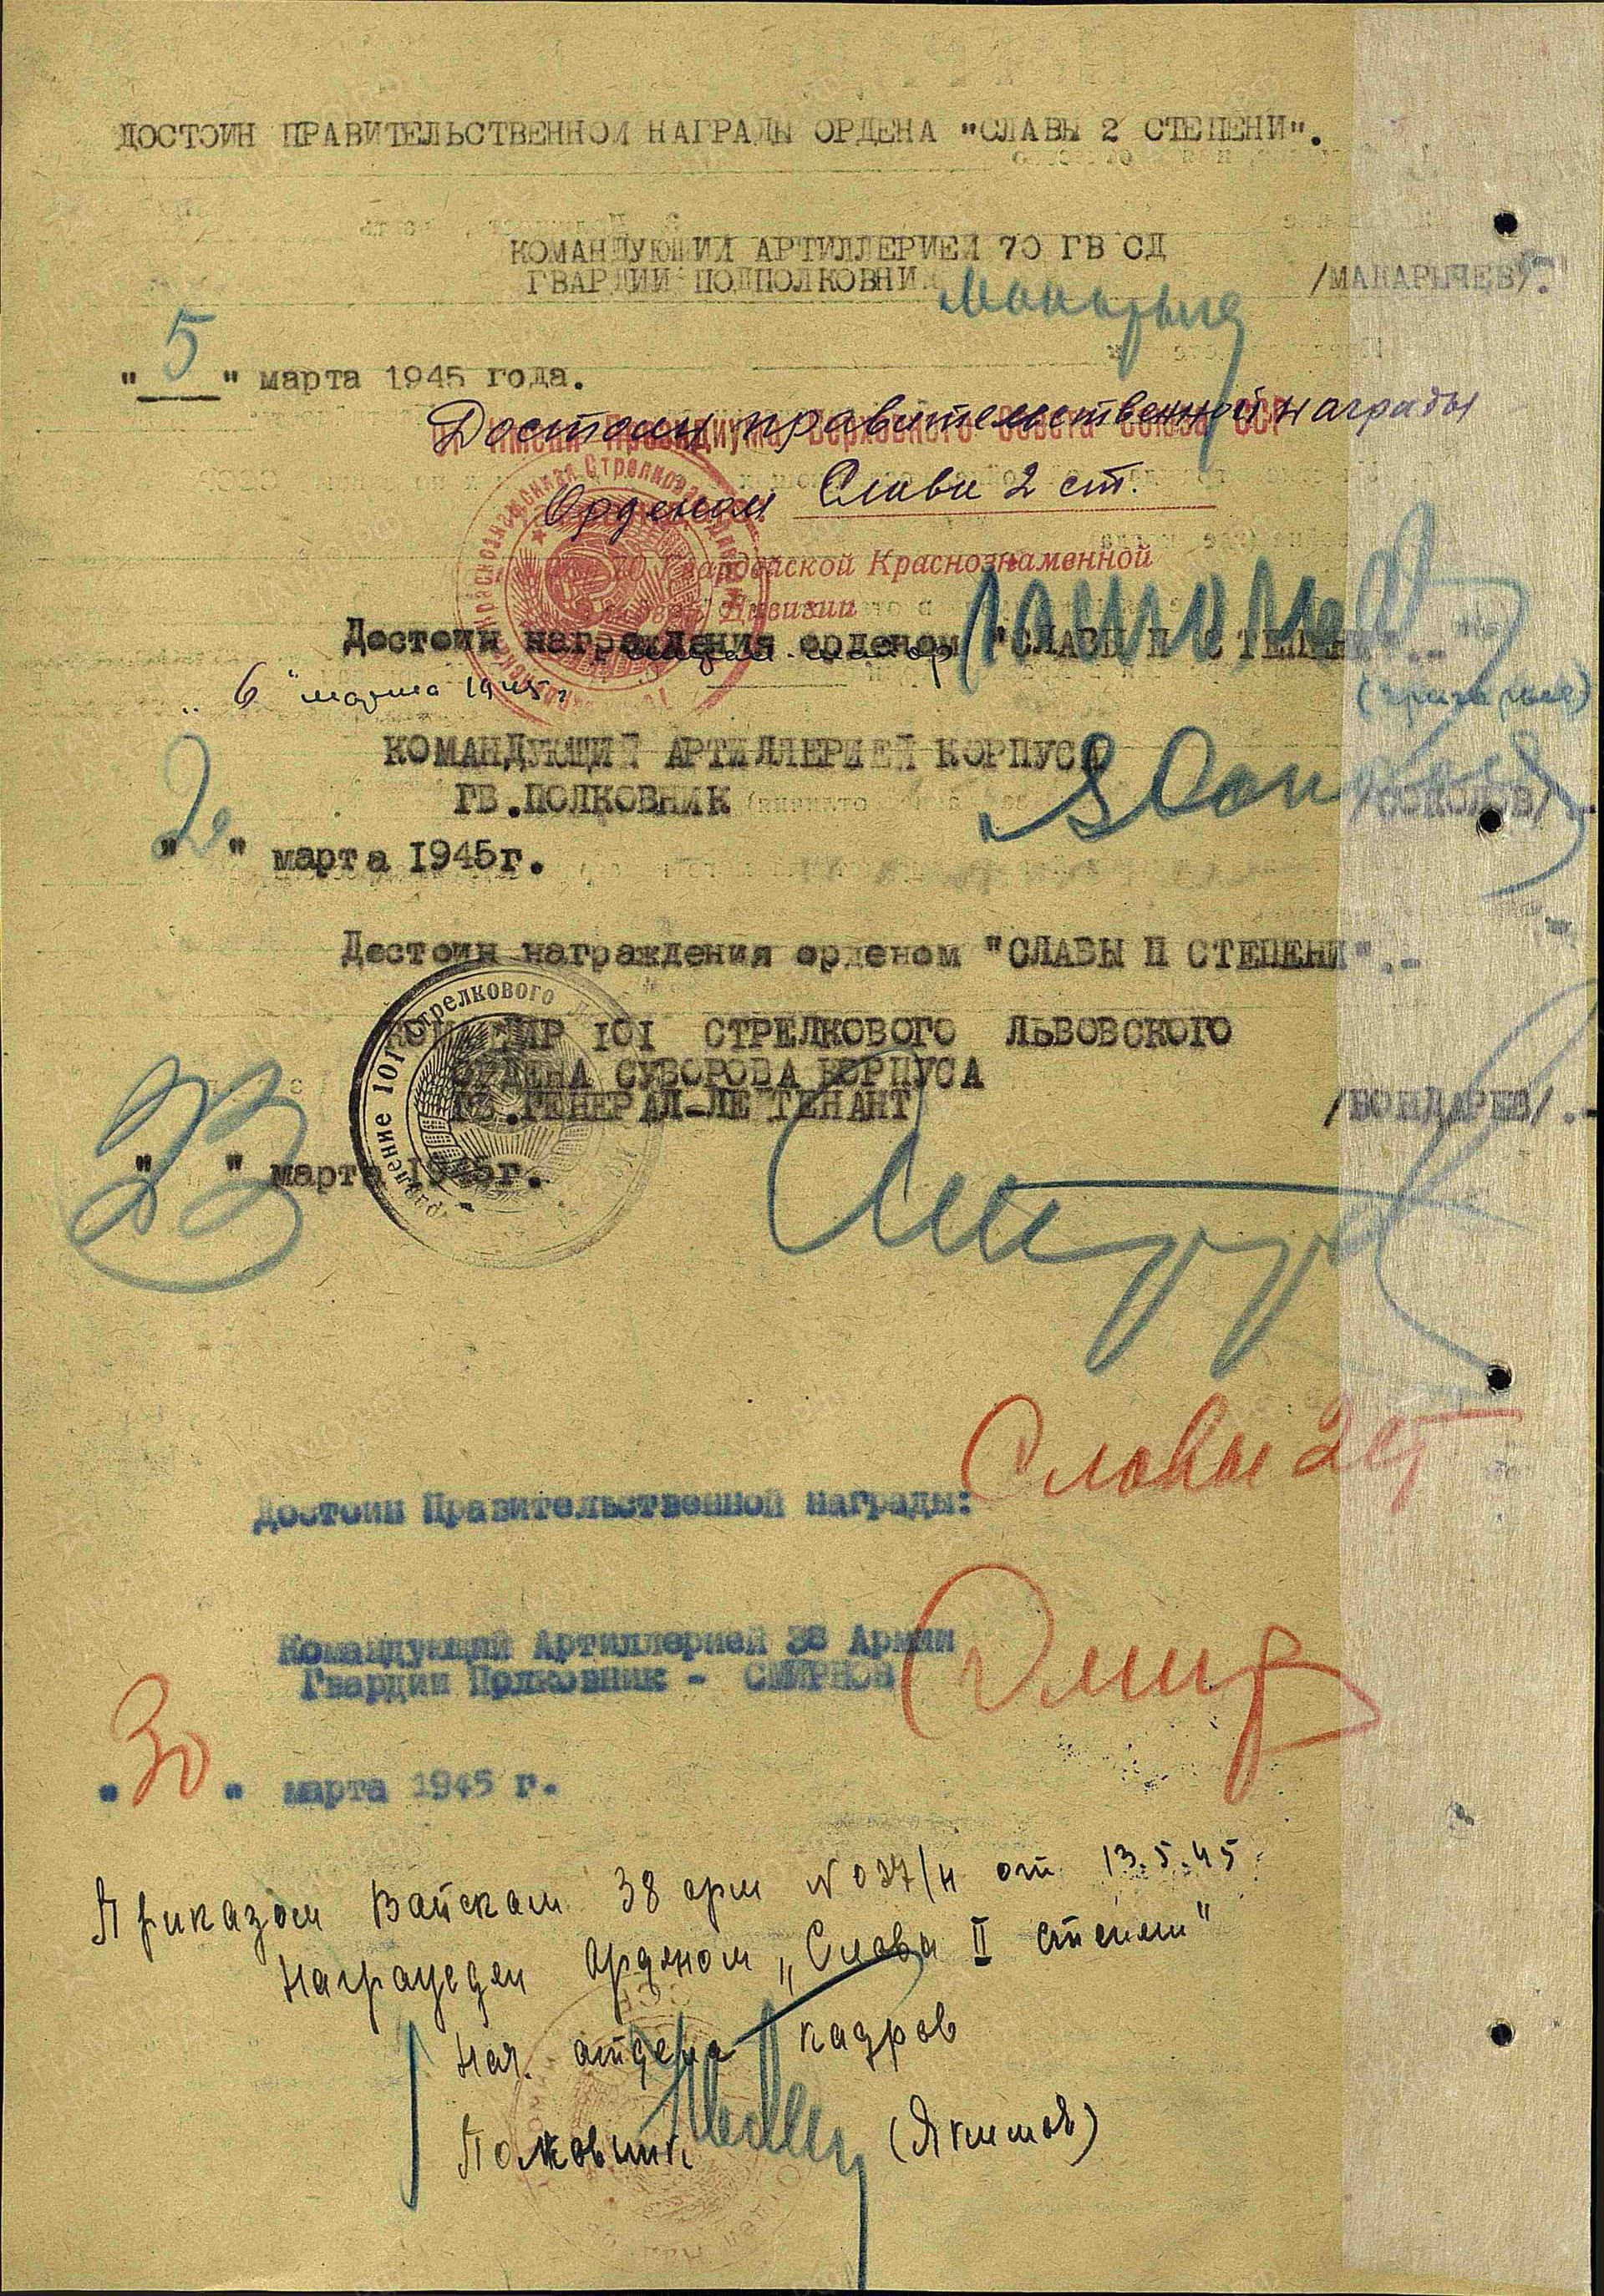 ДОСТОИН ПРАВИТЕЛЬСТВЕННОЙ НАГРАДЫ ОРДЕНА "СЛАВЫ 2 СТЕПЕНИ".
КОМАНДУЮЩИЙ АРТИЛЛЕРИЕЙ 70 ГВ СД
ГВАРДИИ ПОДПОЛКОВНИК /МАКАРЫЧЕВ/.
"5" марта 1945 года.
От имени Президиума Верховного Совета Союза ССР
Достоин правительственной награды
Орденом Слава 2 ст.
70 Гвардейской Краснознаменной
Дивизии
Достоин награждения орденом "СЛАВЫ II СТЕПЕНИ".-
"6" марта 1945 г.
КОМАНДУЮЩИЙ АРТИЛЛЕРИЕЙ КОРПУСА
ГВ.ПОЛКОВНИК /СОКОЛОВ/.-
" " марта 1945г.
Достоин награждения орденом "СЛАВЫ II СТЕПЕНИ".-
КОМАНДИР 101 СТРЕЛКОВОГО ЛЬВОВСКОГО
ОРДЕНА СУВОРОВА КОРПУСА
ГВ.ГЕНЕРАЛ-ЛЕЙТЕНАНТ /БОНДАРЕВ/.-
" " марта 1945г.
Славы 2 ст
Достоин Правительственной награды:
Командующий Артиллерией 38 Армии
Гвардии Полковник - СМИРНОВ
"30" марта 1945 г.
Приказом Войскам 38 арм № 037/н от 13.5.45
Награжден Орденом "Славы II степени"
Нач. отдела кадров
Полковник (Якимов)